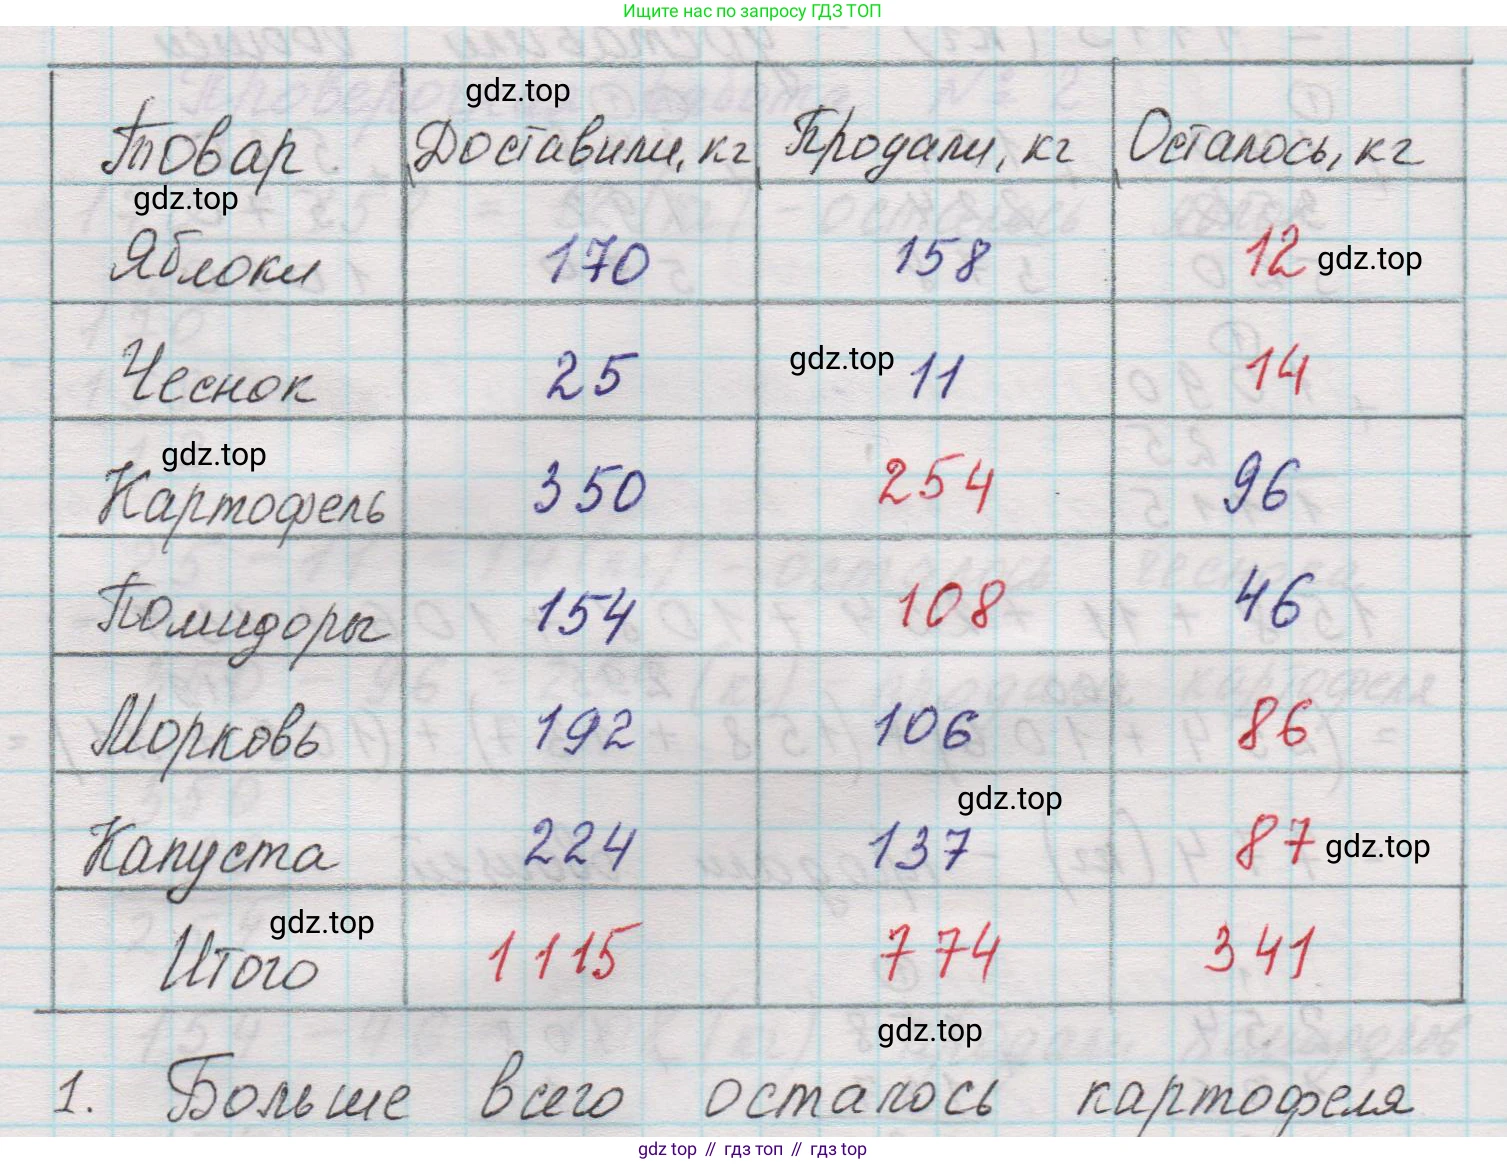 Ищите нас по запросу ГДЗ ТОП
gdz.top
Товар Доставили, кг Продали, кг Осталось, кг
gdz.top
Яблоки 170 158 12 gdz.top
Чеснок 25 gdz.top 11 14
gdz.top
Картофель 350 254 96
Помидоры 154 108 46
Морковь 192 106 86
gdz.top
Капуста 224 137 87 gdz.top
gdz.top
Итого 1115 774 341
gdz.top
1. Больше всего осталось картофеля
gdz top // гдз топ // гдз top